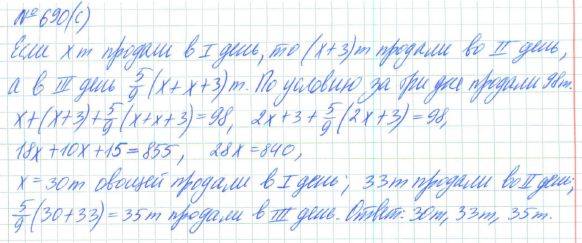 № 690(с)
Если x т продали в I день, то (x+3) т продали во II день,
а в III день 5/9 (x+x+3) т. По условию за три дня продали 98 т.
x+(x+3)+5/9(x+x+3)=98, 2x+3+5/9(2x+3)=98,
18x+10x+15=855, 28x=840,
x=30 т овощей продали в I день; 33 т продали во II день;
5/9(30+33)=35 т продали в III день. Ответ: 30 т, 33 т, 35 т.